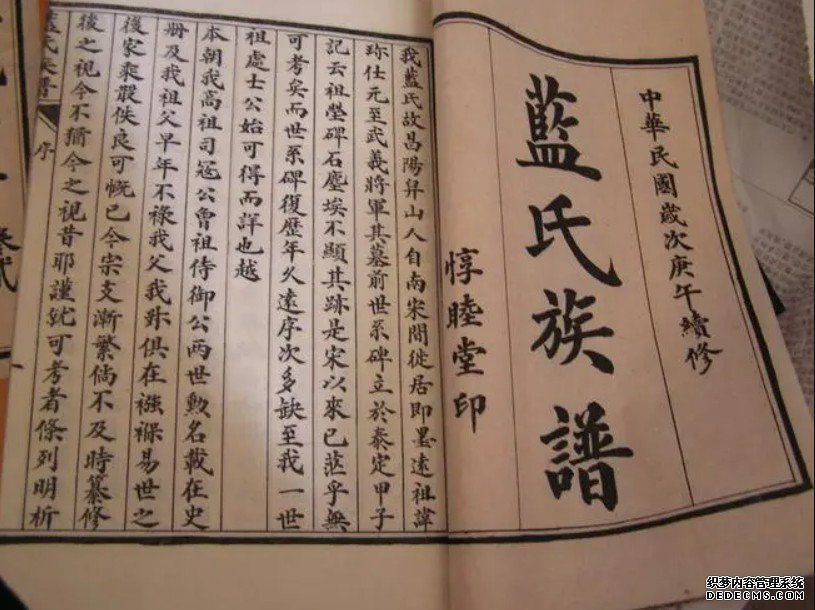 中華民國歲次庚午續修
藍氏族譜
惇睦堂印
我藍氏故昌陽昇山人自南宋間徙居即墨遠祖諱
珎仕元至武義將軍其墓前世系碑立於泰定甲子
記云祖塋碑石塵埃不顯其跡是宋以來已茫乎無
可考矣而世系碑復歷年久遠序次多缺至我一世
祖處士公始可得而詳也越
本朝我高祖司寇公曾祖侍御公兩世勲名載在史
册及我祖父早年不禄我父我叔俱在襁褓易世之
後家乘散佚良可慨已今宗支漸繁倘不及時纂修
後之視今不猶今之視昔耶謹就可考者條列明析
藍氏族譜
序
织梦内容管理系统
DEDECMS.COM